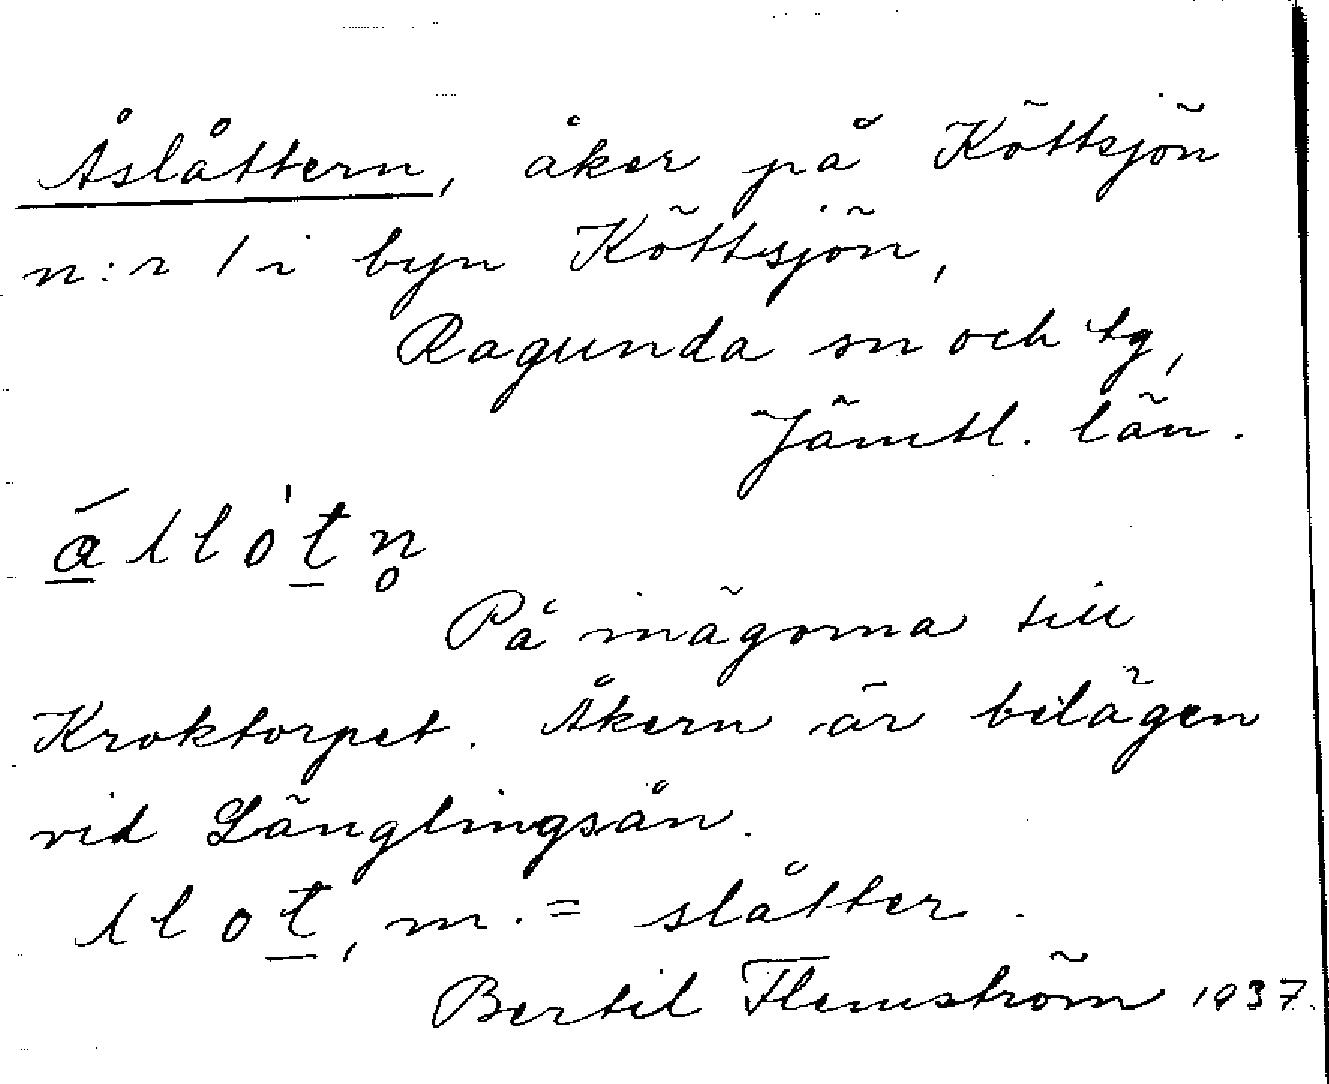 Åslåttern, åker på Köttsjön
n:r 1 i byn Köttsjön,
Ragunda sn och tg,
Jämtl. län.
á̱slo̍ṯn̥
På inägorna till
Kroktorpet. Åkern är belägen
vid Länglingsån.
sloṯ, m. = slåtter.
Bertil Flemström 1937.